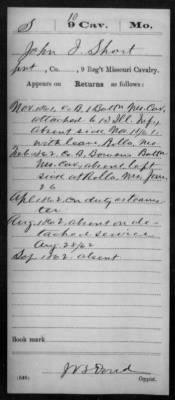 S 9 Cav. Mo.
John J Short
Pvt., Co. , 9 Reg't Missouri Cavalry.
Appears on Returns as follows:
Nov. 1861, Co B 1 Battn Mo. Cav.
attached to 13 Ill. Inf.,
absent sick Nov 1861
with leave Rolla, Mo.
Feb 1862 Co. B. Bowen's Battn
Mo. Cav. absent left
sick at Rolla, Mo., Jan.
26
Apl 1862 on duty as teams-
ter
Aug 1862, absent on de-
tached service
Aug. 28/62
Sep. 1862. absent
Book mark:
(546)
Copyist.